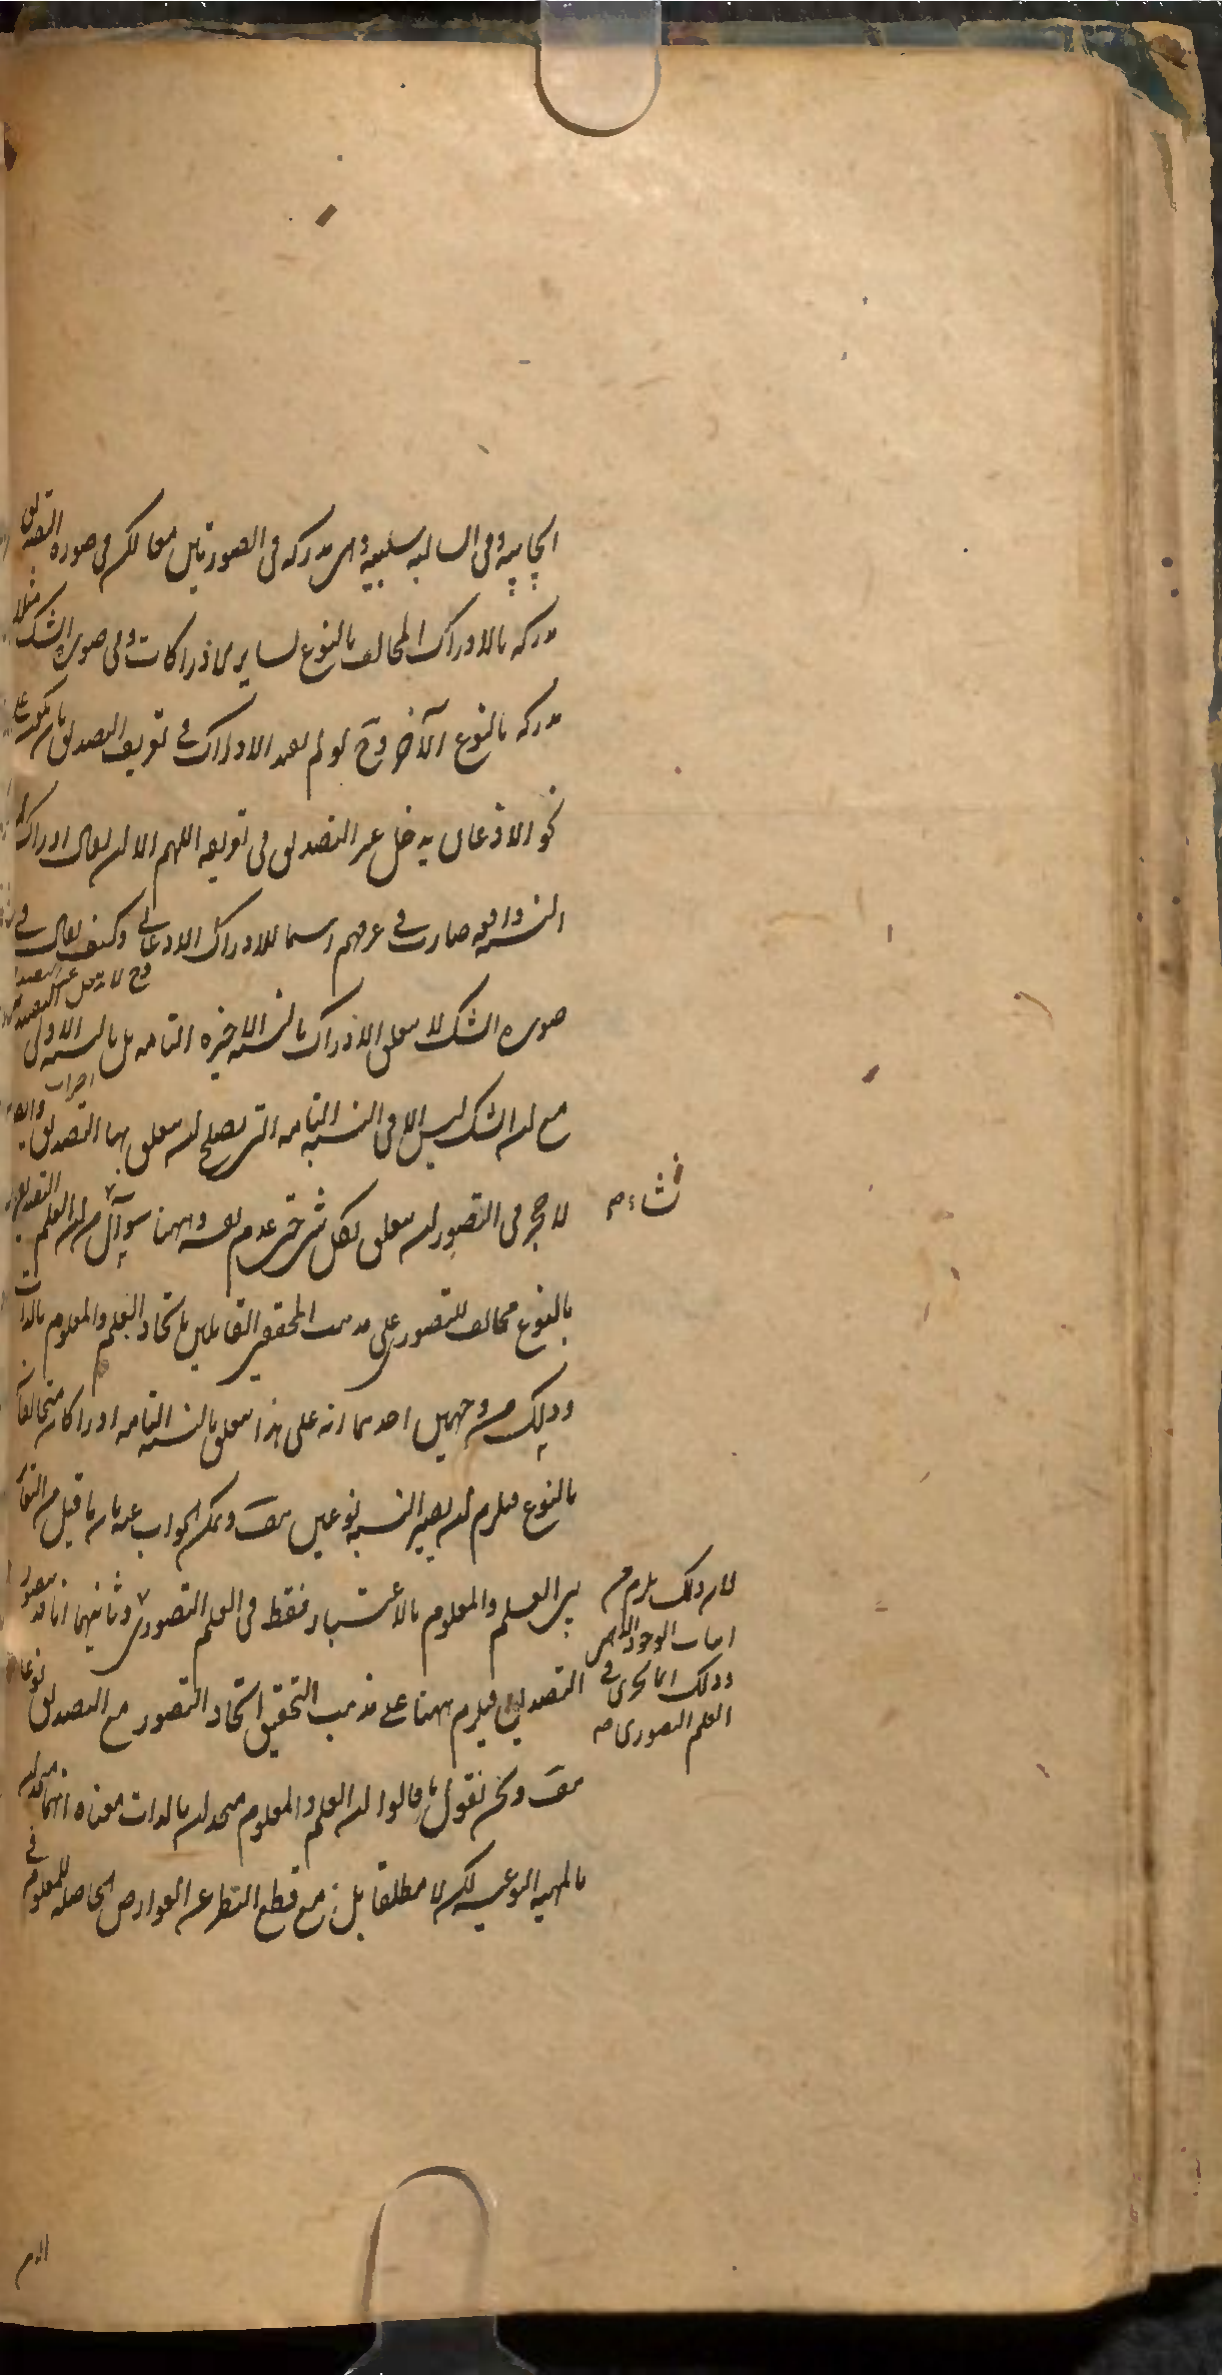 ايجابية وفى السالبة سلبية وهى مدركة فى الصورتين معا لكن فى صورة التصديق
مدركة بالادراك المخالف بالنوع لساير الادراكات وفى صورة الشك مثلا
مدركة بالنوع الآخر وح لو لم يقيد الادراك فى تعريف التصديق بان يكون على
نحو الاذعان يدخل غير التصديق فى تعريفه اللهم الا ان يقال ادراك ان
النسبة واقعة صارت فى عرفهم اسما للادراك الاذعانى وكيف يقال فى
وح لا يدخل غير التصديق
صورة الشك لا يتعلق الادراك بالنسبة الاخيرة التامة بل بالنسبة الاولى
مع ان الشك ليس الا فى النسبة التامة التى يصلح ان يتعلق بها التصديق وايضا
لا حجر فى التصور ان يتعلق بكل شئ حتى عدم نفسه وههنا سوآل من ان العلم التصديقى
بالنوع مخالف للتصور على مذهب المحققين القايلين باتحاد العلم والمعلوم بالذات
وذلك من وجهين احدهما انه على هذا يتعلق بالنسبة التامة ادراكان متخالفان
بالنوع فيلزم ان يصير النسبة نوعين هف ويمكن الجواب عنه بان ما قيل من التغاير
بين العلم والمعلوم بالاعتبار فقط فى العلم التصورى وثانيهما انا قد نتصور
لان ذلك يلزم من
اثبات الوجود الذهنى
وذلك انما يجرى فى
العلم التصورى صه
التصديق فيلزم ههنا على مذهب التحقيق اتحاد التصور مع التصديق نوعا
هف ونحن نقول ما قالوا ان العلم والمعلوم متحدان بالذات معناه انهما متحدان
بالمهية النوعية لكن لا مطلقا بل مع قطع النظر عن العوارض الحاصلة للمعلوم فى